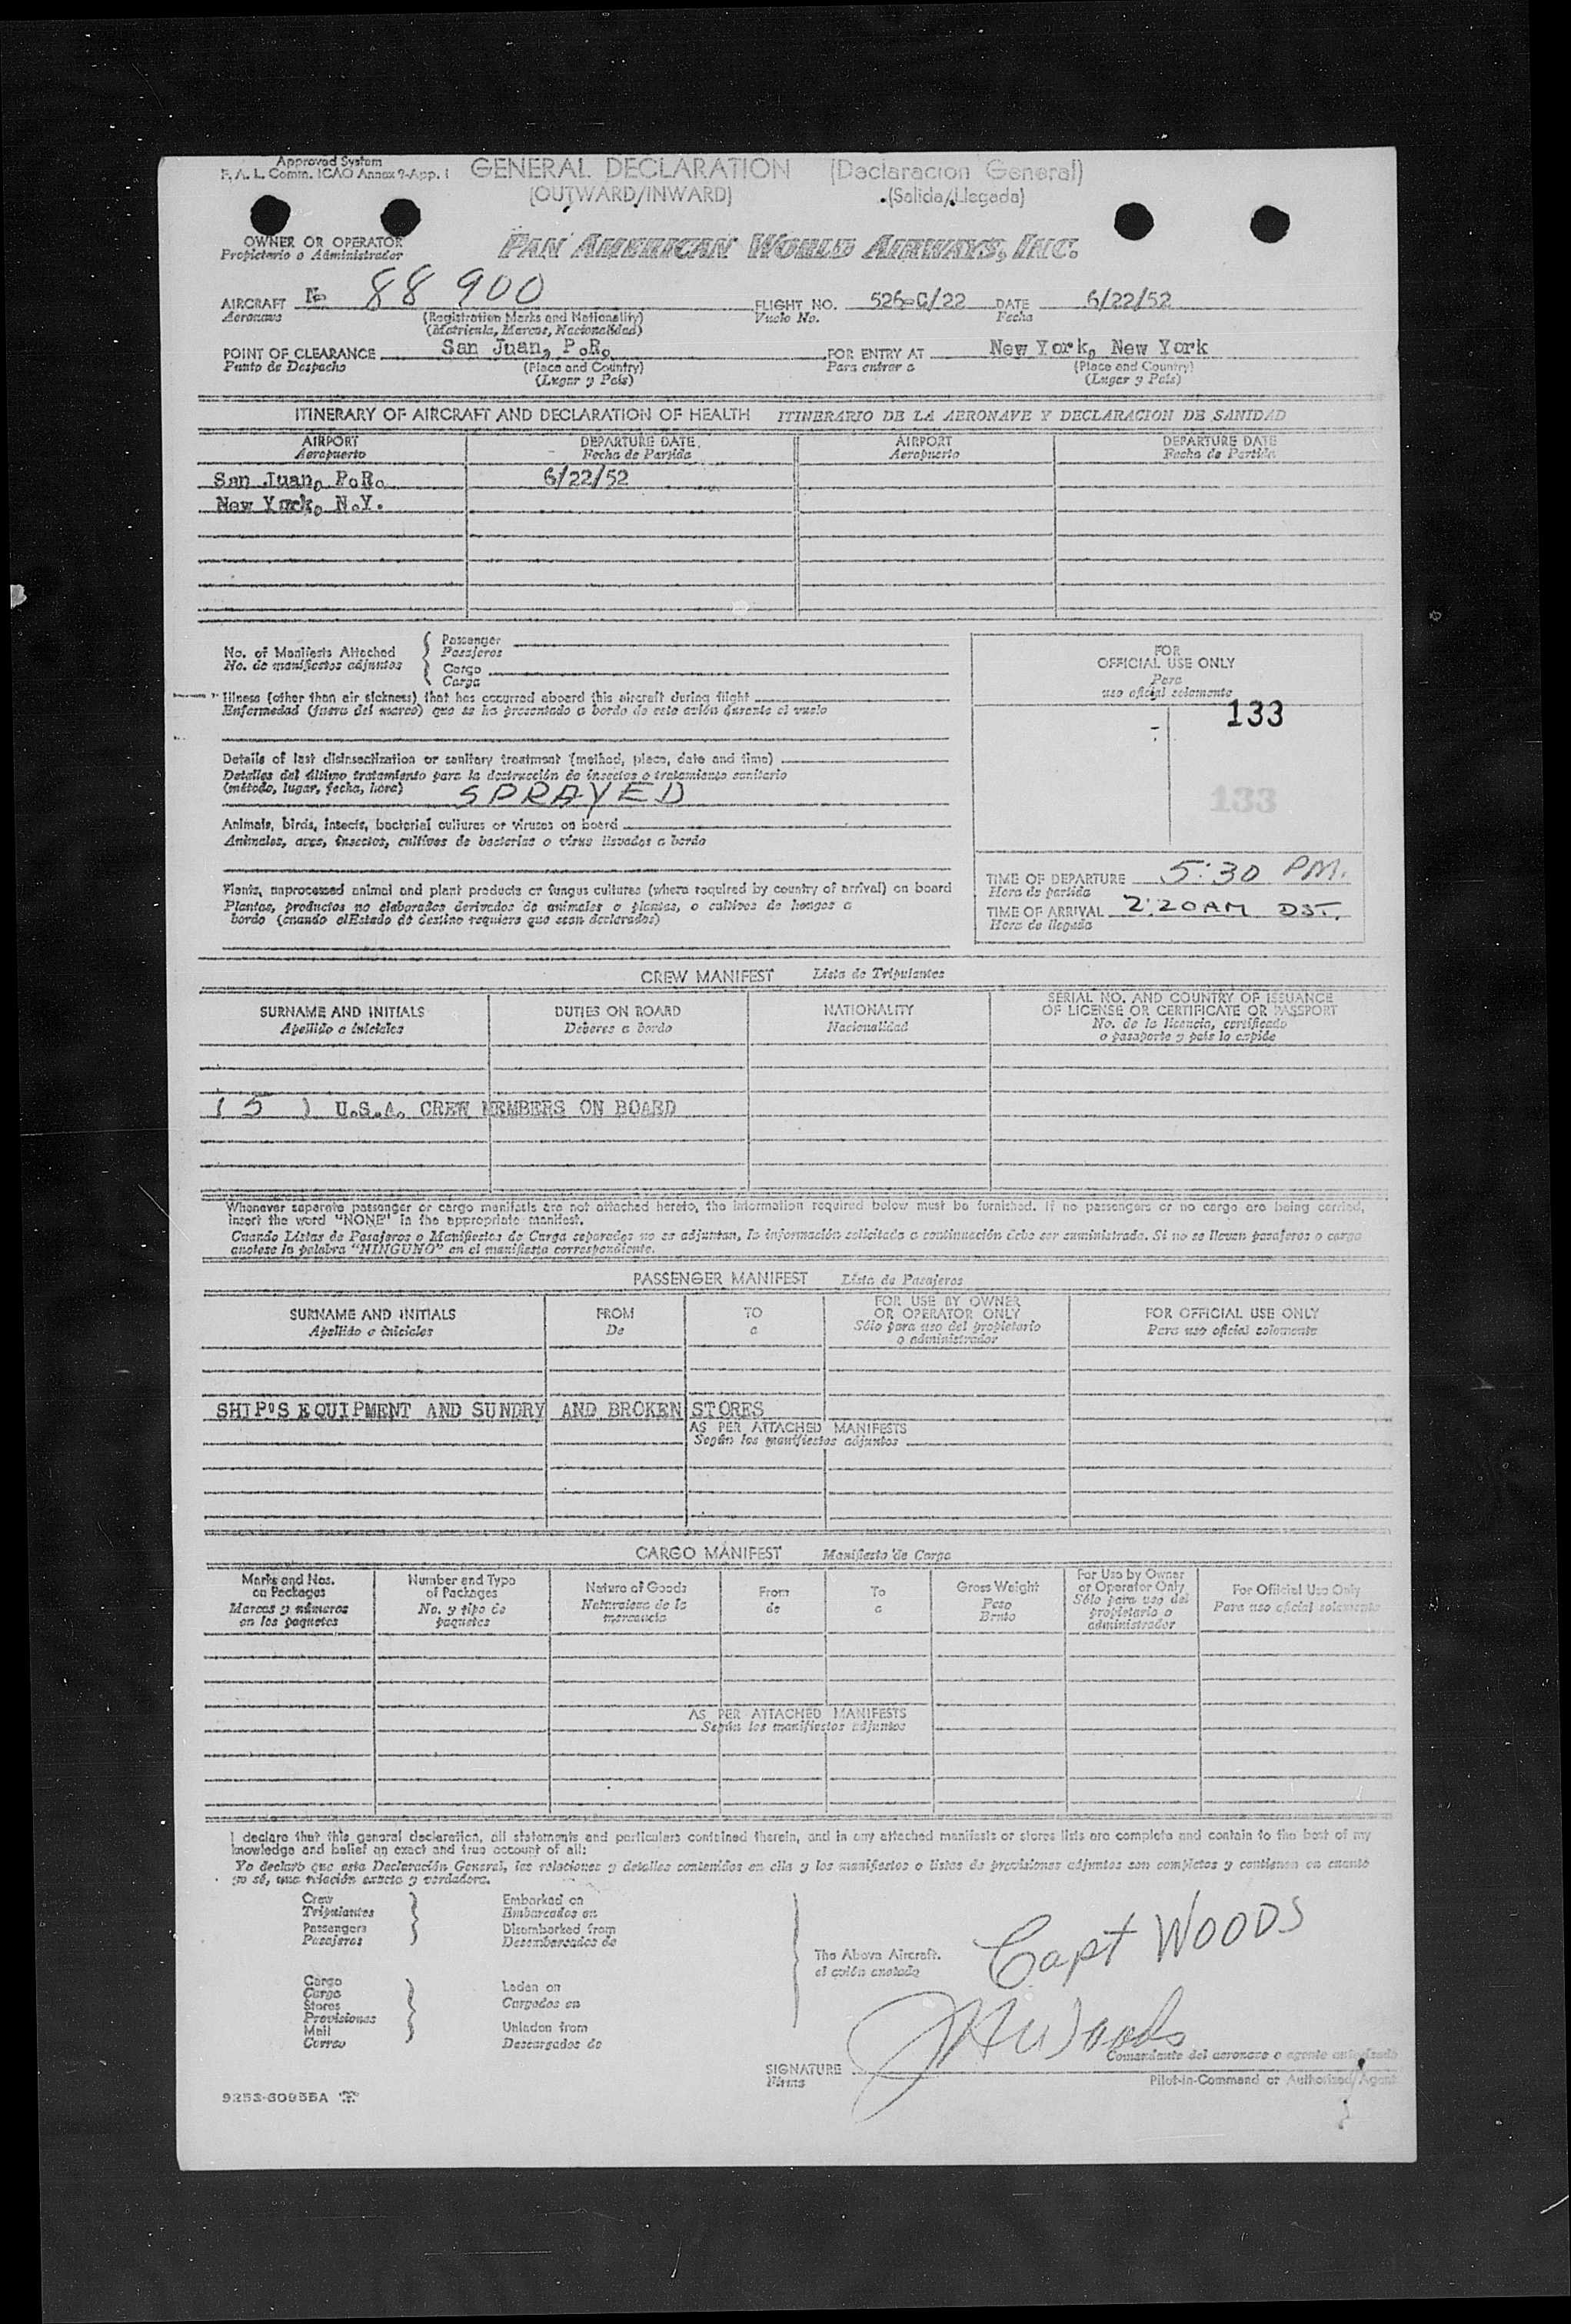 Approved System
F. A. L. Comm. ICAO Annex 9-App. 1
GENERAL DECLARATION (Declaracion General)
(OUTWARD/INWARD) (Salida/Llegada)
OWNER OR OPERATOR
Propietario o Administrador
PAN AMERICAN WORLD AIRWAYS, INC.
AIRCRAFT N- 88 900 FLIGHT NO. 526-C/22 DATE 6/22/52
Aeronave (Registration Marks and Nationality) Vuelo No. Fecha
(Matricula, Marcas, Nacionalidad)
POINT OF CLEARANCE San Juan, P.R. FOR ENTRY AT New York, New York
Punto de Despacho (Place and Country) Para entrar a (Place and Country)
(Lugar y País) (Lugar y País)
ITINERARY OF AIRCRAFT AND DECLARATION OF HEALTH ITINERARIO DE LA AERONAVE Y DECLARACION DE SANIDAD
AIRPORT DEPARTURE DATE AIRPORT DEPARTURE DATE
Aeropuerto Fecha de Partida Aeropuerto Fecha de Partida
San Juan, P.R. 6/22/52
New York, N.Y.
No. of Manifests Attached
No. de manifiestos adjuntos
Passenger
Pasajeros
Cargo
Carga
Illness (other than air sickness) that has occurred aboard this aircraft during flight
Enfermedad (fuera del mareo) que se ha presentado a bordo de este avión durante el vuelo
Details of last disinsectization or sanitary treatment (method, place, date and time)
Detalles del último tratamiento para la destrucción de insectos o tratamiento sanitario
(método, lugar, fecha, hora) SPRAYED
Animals, birds, insects, bacterial cultures or viruses on board
Animales, aves, insectos, cultivos de bacterias o virus llevados a bordo
Plants, unprocessed animal and plant products or fungus cultures (where required by country of arrival) on board
Plantas, productos no elaborados derivados de animales o plantas, o cultivos de hongos a
bordo (cuando el Estado de destino requiera que sean declarados)
FOR
OFFICIAL USE ONLY
Para
uso oficial solamente
133
133
TIME OF DEPARTURE 5:30 PM.
Hora de partida
TIME OF ARRIVAL 2:20 AM DST.
Hora de llegada
CREW MANIFEST Lista de Tripulantes
SURNAME AND INITIALS DUTIES ON BOARD NATIONALITY SERIAL NO. AND COUNTRY OF ISSUANCE
OF LICENSE OR CERTIFICATE OR PASSPORT
Apellido e iniciales Deberes a bordo Nacionalidad No. de la licencia, certificado
o pasaporte y país lo expide
( 5 ) U.S.A. CREW MEMBERS ON BOARD
Whenever separate passenger or cargo manifests are not attached hereto, the information required below must be furnished. If no passengers or no cargo are being carried,
insert the word "NONE" in the appropriate manifest.
Cuando Listas de Pasajeros o Manifiestos de Carga separados no se adjuntan, la información solicitada a continuación debe ser suministrada. Si no se llevan pasajeros o carga
anótese la palabra "NINGUNO" en el manifiesto correspondiente.
PASSENGER MANIFEST Lista de Pasajeros
SURNAME AND INITIALS FROM TO FOR USE BY OWNER
OR OPERATOR ONLY FOR OFFICIAL USE ONLY
Apellido e iniciales De a Sólo para uso del propietario
o administrador Para uso oficial solamente
SHIP'S EQUIPMENT AND SUNDRY AND BROKEN STORES
AS PER ATTACHED MANIFESTS
Según los manifiestos adjuntos
CARGO MANIFEST Manifiesto de Carga
Marks and Nos.
on Packages
Marcas y números
en los paquetes
Number and Type
of Packages
No. y tipo de
paquetes
Nature of Goods
Naturaleza de la
mercancía
From
de
To
a
Gross Weight
Peso
Bruto
For Use by Owner
or Operator Only
Sólo para uso del
propietario o
administrador
For Official Use Only
Para uso oficial solamente
AS PER ATTACHED MANIFESTS
Según los manifiestos adjuntos
I declare that this general declaration, all statements and particulars contained therein, and in any attached manifests or stores lists are complete and contain to the best of my
knowledge and belief an exact and true account of all:
Yo declaro que esta Declaración General, las relaciones y detalles contenidos en ella y los manifiestos o listas de provisiones adjuntos son completos y contienen en cuanto
yo sé, una relación exacta y verdadera.
Crew
Tripulantes
Passengers
Pasajeros
Embarked on
Embarcados en
Disembarked from
Desembarcados de
Cargo
Carga
Stores
Provisiones
Mail
Correo
Laden on
Cargados en
Unladen from
Descargados de
The Above Aircraft.
el avión anotado
Capt WOODS
Woods
Comandante del aeronave o agente autorizado
SIGNATURE
Firma
Pilot-in-Command or Authorized Agent
9253-60955A